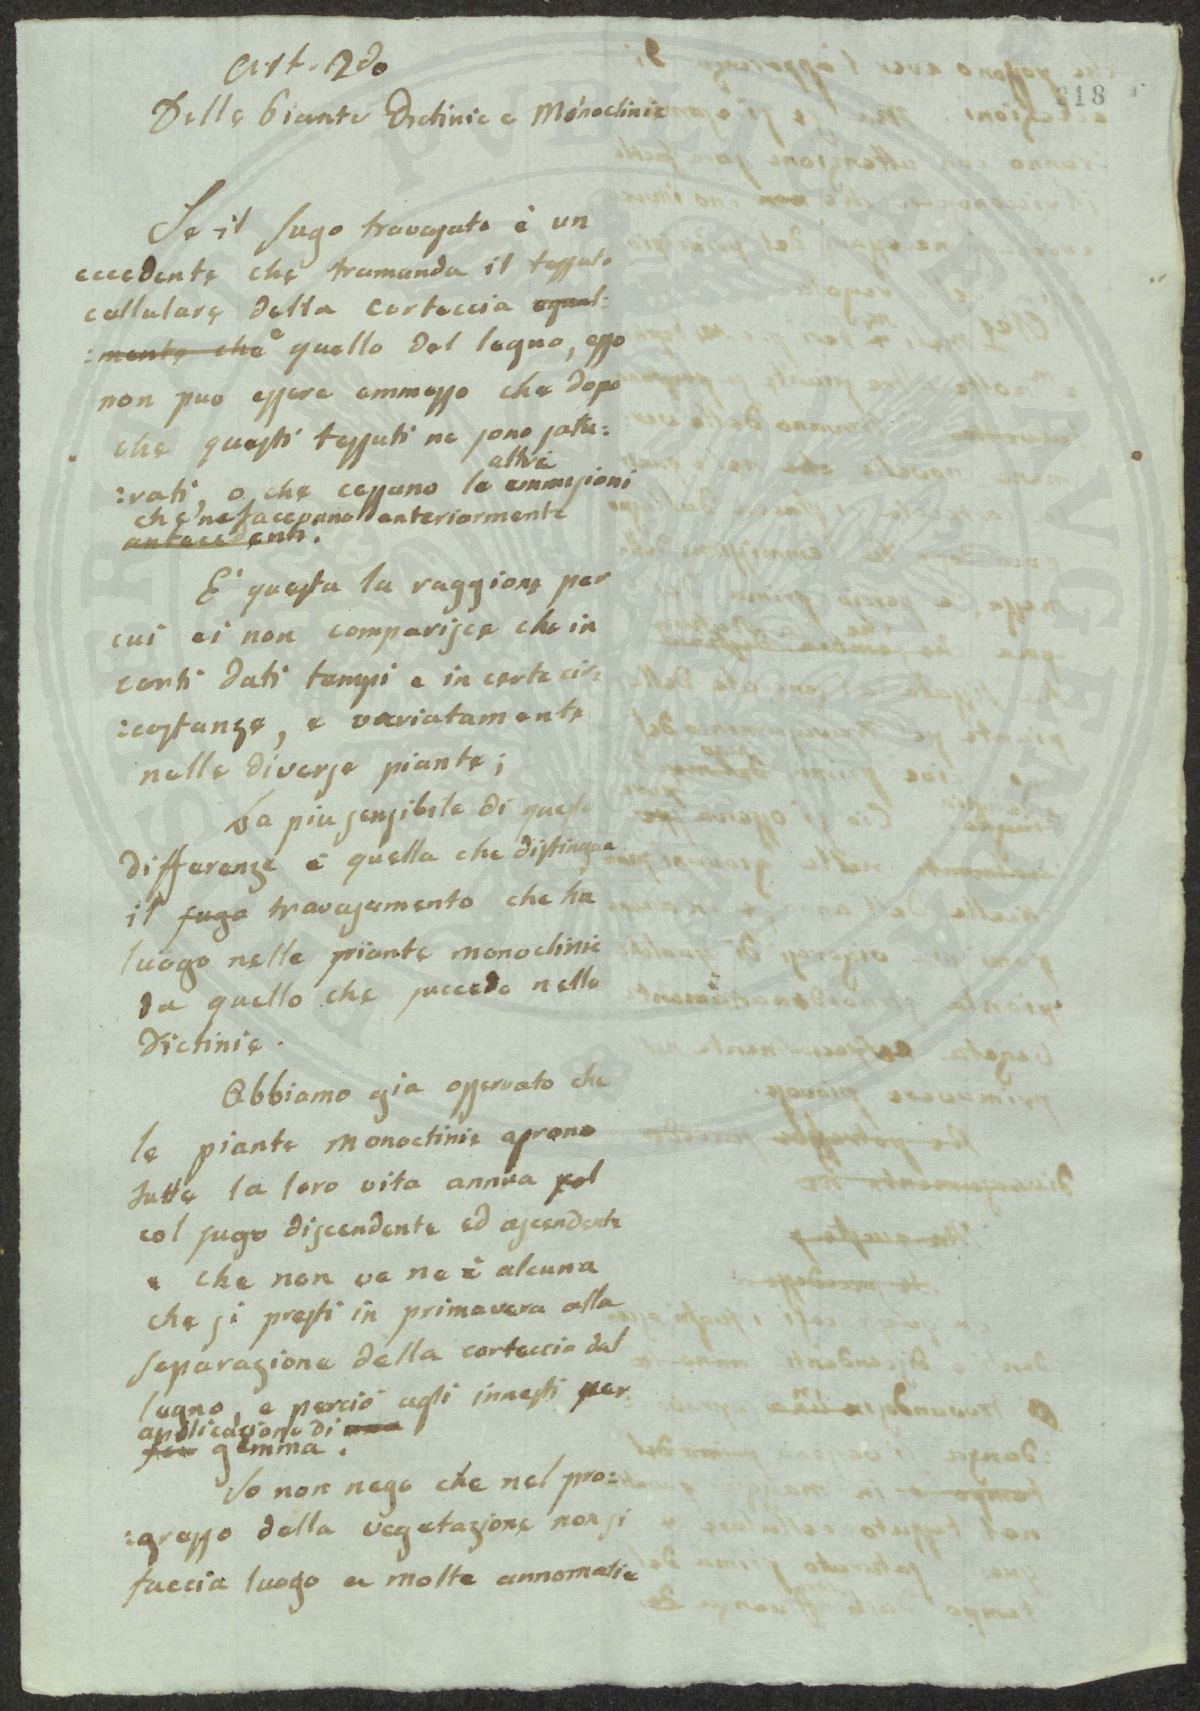 218
Art. 2do
Delle Piante Dictinie e Monoclinie
Se il sugo travasato è un
eccedente che tramanda il tessuto
cellulare della corteccia egual:
:mente che e quello del legno, esso
non puo essere ammesso che dopo
che questi tessuti ne sono satu:
:rati, o che cessano le altre ammesioni
che ne facevano anteriormente
antecedenti.
E' questa la raggione per
cui ei non comparisce che in
certi dati tempi e in certe cir:
:costanze, e variatamente
nelle diverse piante;
La piu sensibile di queste
differenze è quella che distingue
il sugo travasamento che ha
luogo nelle piante monoclinie
da quello che succede nelle
Dictinie.
Abbiamo gia osservato che
le piante Monoctinie aprono
tutte la loro vita annua col
col sugo discendente ed ascendente
e che non ve ne è alcuna
che si presti in primavera alla
separazione della corteccia dal
legno, e perciò agli innesti per
applicazione di una
gemma.
Io non nego che nel pro:
:gresso della vegetazione non si
faccia luogo a molte annomalie